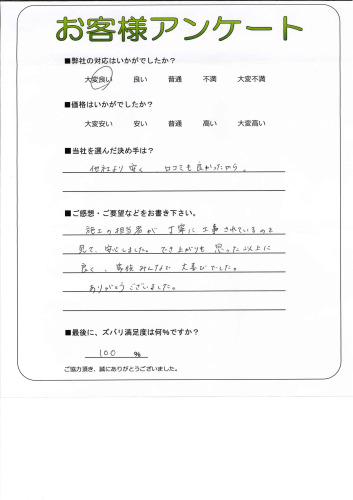 お客様アンケート
■弊社の対応はいかがでしたか？
大変良い 良い 普通 不満 大変不満
■価格はいかがでしたか？
大変安い 安い 普通 高い 大変高い
■当社を選んだ決め手は？
他社より安く 口コミも良かったから。
■ご感想・ご要望などをお書き下さい。
施工の担当者が 丁寧に 工事されているのを
見て、安心しました。でき上がりも 思った以上に
良く、家族みんなで 大喜びでした。
ありがとうございました。
■最後に、ズバリ満足度は何%ですか？
100 %
ご協力頂き、誠にありがとうございました。